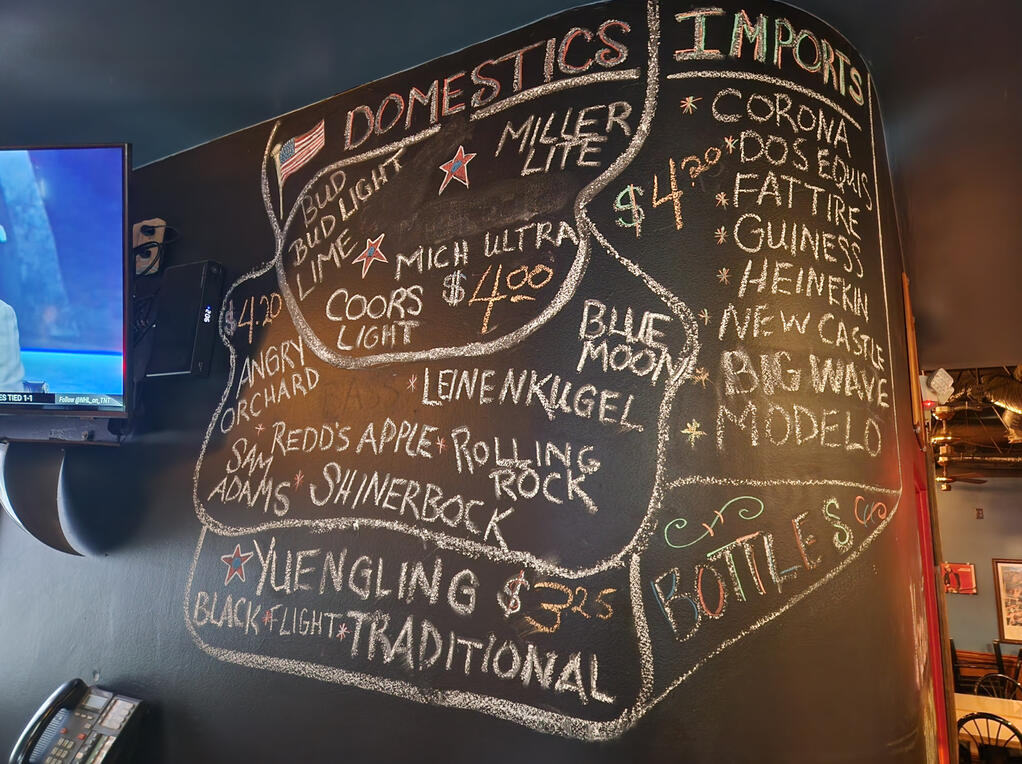 DOMESTICS
BUD
BUD LIGHT
LIME
MILLER
LITE
MICH ULTRA
COORS
LIGHT
$4.00
$4.20
ANGRY
ORCHARD
BLUE
MOON
* LEINENKUGEL
* REDD'S APPLE *
ROLLING
ROCK
SAM
ADAMS *
SHINERBOCK
YUENGLING $3.25
BLACK * FLIGHT * TRADITIONAL
IMPORTS
$4.20
* CORONA
* DOS EQUIS
* FATTIRE
* GUINESS
* HEINEKIN
* NEW CASTLE
* BIG WAVE
* MODELO
BOTTLES
ES TIED 1-1
Follow @NHL_on_TNT